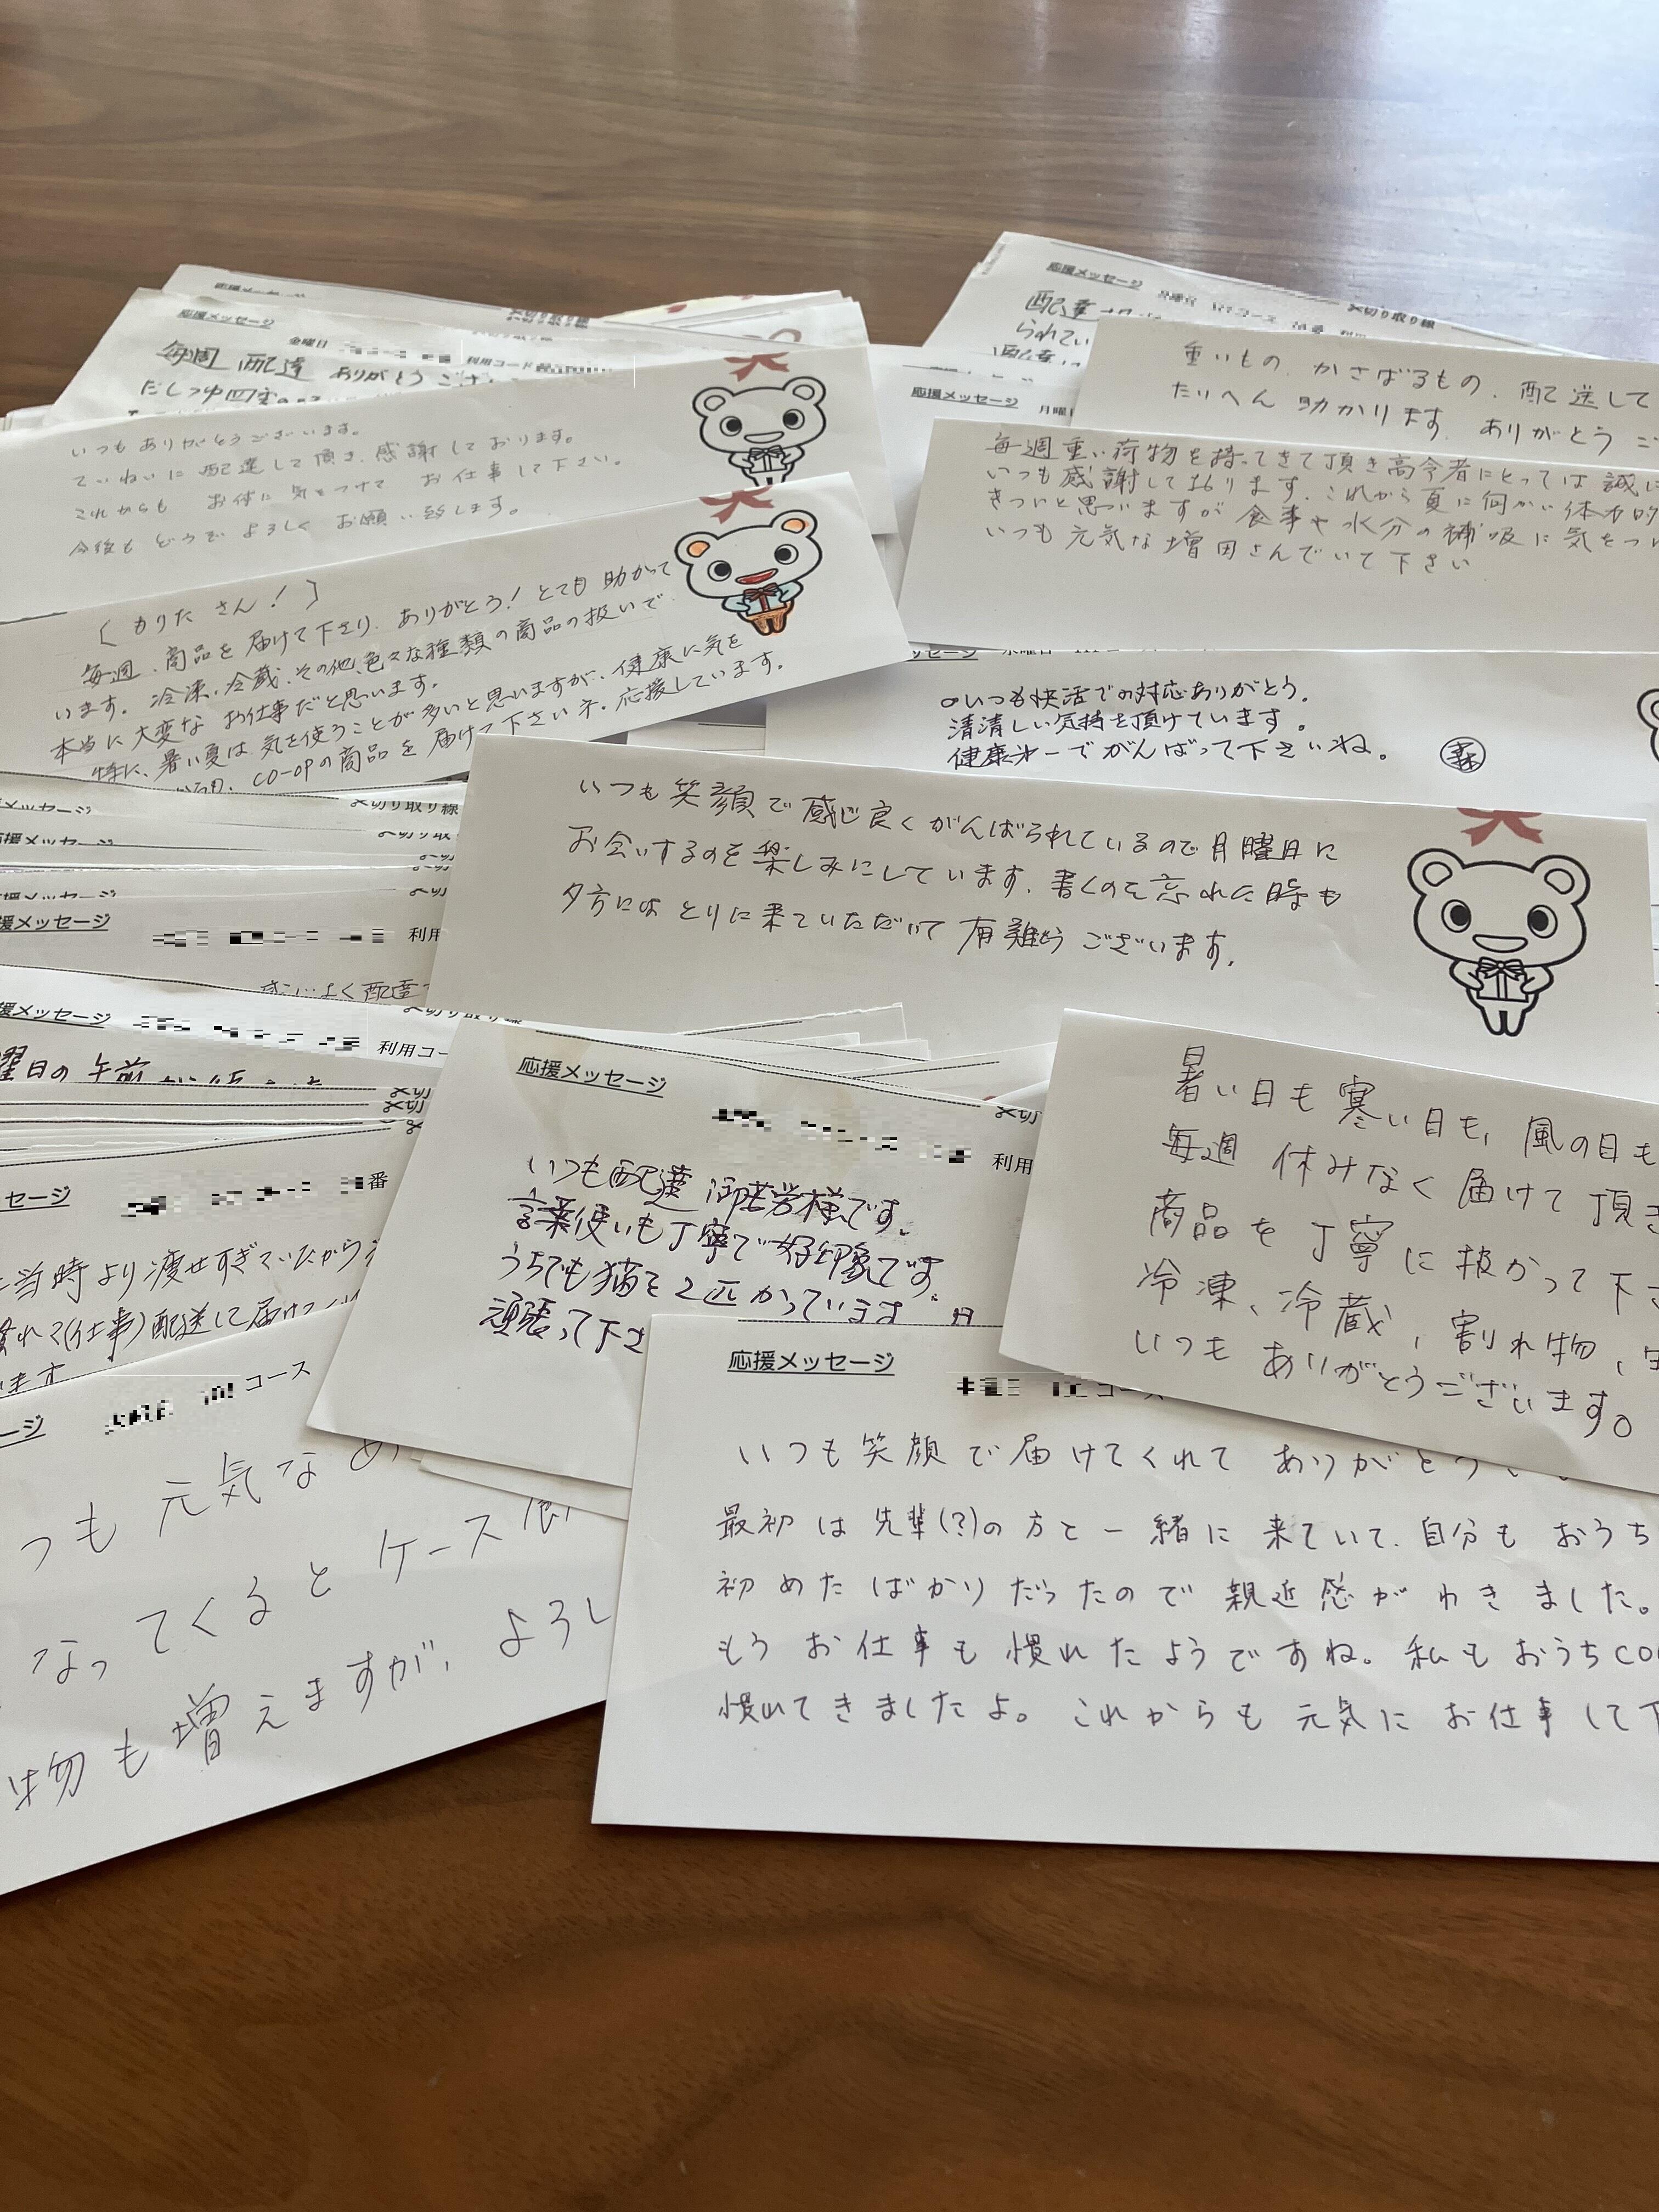 応援メッセージ
応援メッセージ
金曜日
利用コード
切り取り線
毎週 配達 ありがとうござ
いつもありがとうございます。
ていねいに配達して頂き、感謝しております。
これからも お体に気をつけて お仕事して下さい。
今後も どうぞ よろしく お願い致します。
さん!
毎週、商品を届けて下さり、ありがとう!とても助かって
います。冷凍、冷蔵、その他、色々な種類の商品の扱いで
本当に大変なお仕事だと思います。
特に、暑い夏は気を使うことが多いと思いますが、健康に気を
CO-OPの商品を届けて下さいネ。応援しています。
応援メッセージ
切り取り線
配達
られてい
応援メッセージ
重いもの、かさばるもの、配送して
たいへん助かります。ありがとうご
毎週重い荷物を持ってきて頂き高令者にとっては誠に
いつも感謝しております。これから夏に向かい体力的
きついと思いますが食事や水分の補吸に気をつけ
いつも元気な増田さんでいて下さい
いつも快活での対応ありがとう。
清清しい気持を頂けています。
健康第一でがんばって下さいね。
いつも笑顔で感じ良くがんばられているので月曜日に
お会いするのを楽しみにしています。書くのを忘れた時も
夕方にはとりに来ていただいて有難うございます。
メッセージ
切り取り線
援メッセージ
利用
よく配達
援メッセージ
利用コー
曜日の午前
セージ
番
当時より痩せすぎていたから
慣れて(仕事)配送して届け
ます
コース
つも元気な
なってくるとケース
物も増えますが、よろし
応援メッセージ
利用
いつも配達御苦労様です。
言葉使いも丁寧で好印象です。
うちでも猫を2匹かっています。
頑張って下さ
暑い日も寒い日も、風の日も
毎週休みなく届けて頂き
商品を丁寧に扱かって下さ
冷凍、冷蔵、割れ物、
いつもありがとうございます。
応援メッセージ
コース
いつも笑顔で届けてくれてありがとう
最初は先輩(?)の方と一緒に来ていて、自分もおうち
初めたばかりだったので親近感がわきました。
もうお仕事も慣れたようですね。私もおうちCO
慣れてきましたよ。これからも元気にお仕事して下